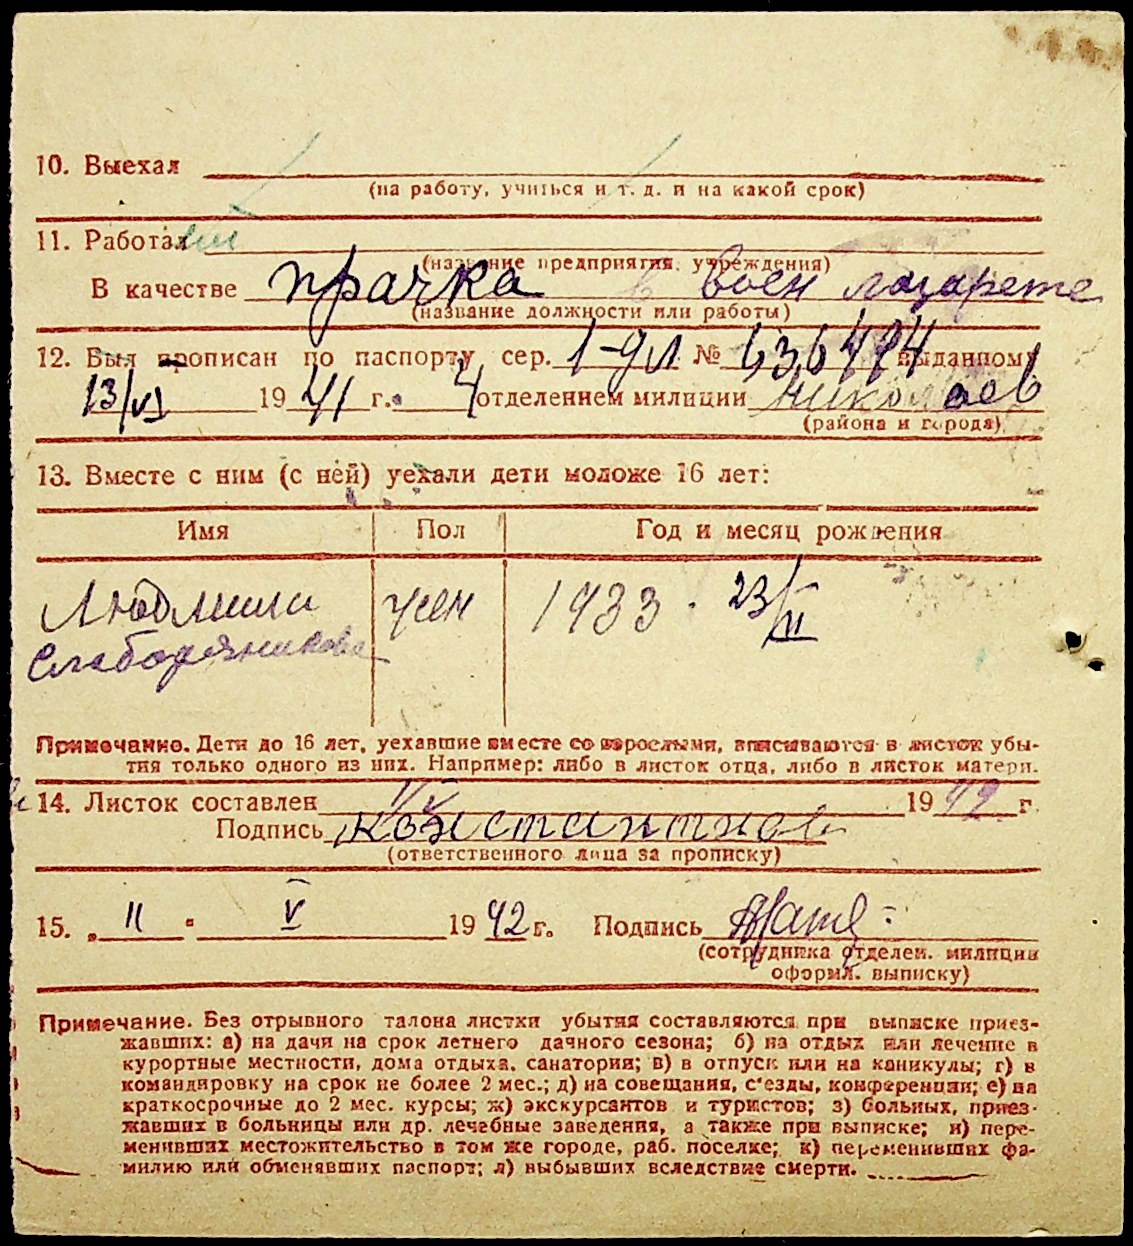 10. Выехал
(на работу, учиться и т. д. и на какой срок)
11. Работал
(название предприятия, учреждения)
В качестве прачка в воен лазарете
(название должности или работы)
12. Был прописан по паспорту сер. № выданному
13/VI 1941 г. 4 отделением милиции Николаев
(района и города)
13. Вместе с ним (с ней) уехали дети моложе 16 лет:
Имя Пол Год и месяц рождения
Людмила жен 1933. 23/VI
Примечание. Дети до 16 лет, уехавшие вместе со взрослыми, вписываются в листок убы-
тия только одного из них. Например: либо в листок отца, либо в листок матери.
14. Листок составлен 1942 г.
Подпись
(ответственного лица за прописку)
15. „11" V 1942 г. Подпись
(сотрудника отделен. милиции
оформл. выписку)
Примечание. Без отрывного талона листки убытия составляются при выписке приез-
жавших: а) на дачи на срок летнего дачного сезона; б) на отдых или лечение в
курортные местности, дома отдыха, санатории; в) в отпуск или на каникулы; г) в
командировку на срок не более 2 мес.; д) на совещания, с'езды, конференции; е) на
краткосрочные до 2 мес. курсы; ж) экскурсантов и туристов; з) больных, приез-
жавших в больницы или др. лечебные заведения, а также при выписке; и) пере-
менивших местожительство в том же городе, раб. поселке; к) переменивших фа-
милию или обменявших паспорт; л) выбывших вследствие смерти.